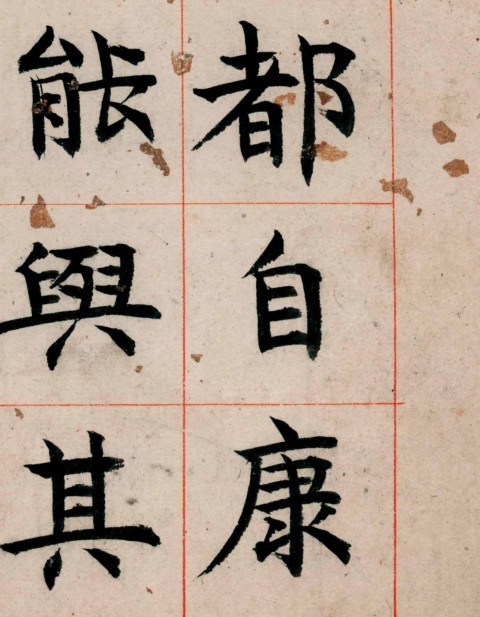 都自康
能與其